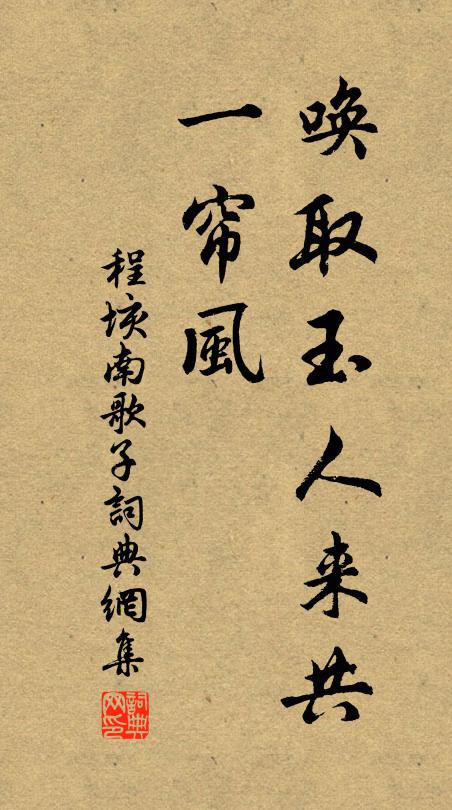 喚取玉人来共
一帘風
程垓南歌子詞典網集
詞典网印